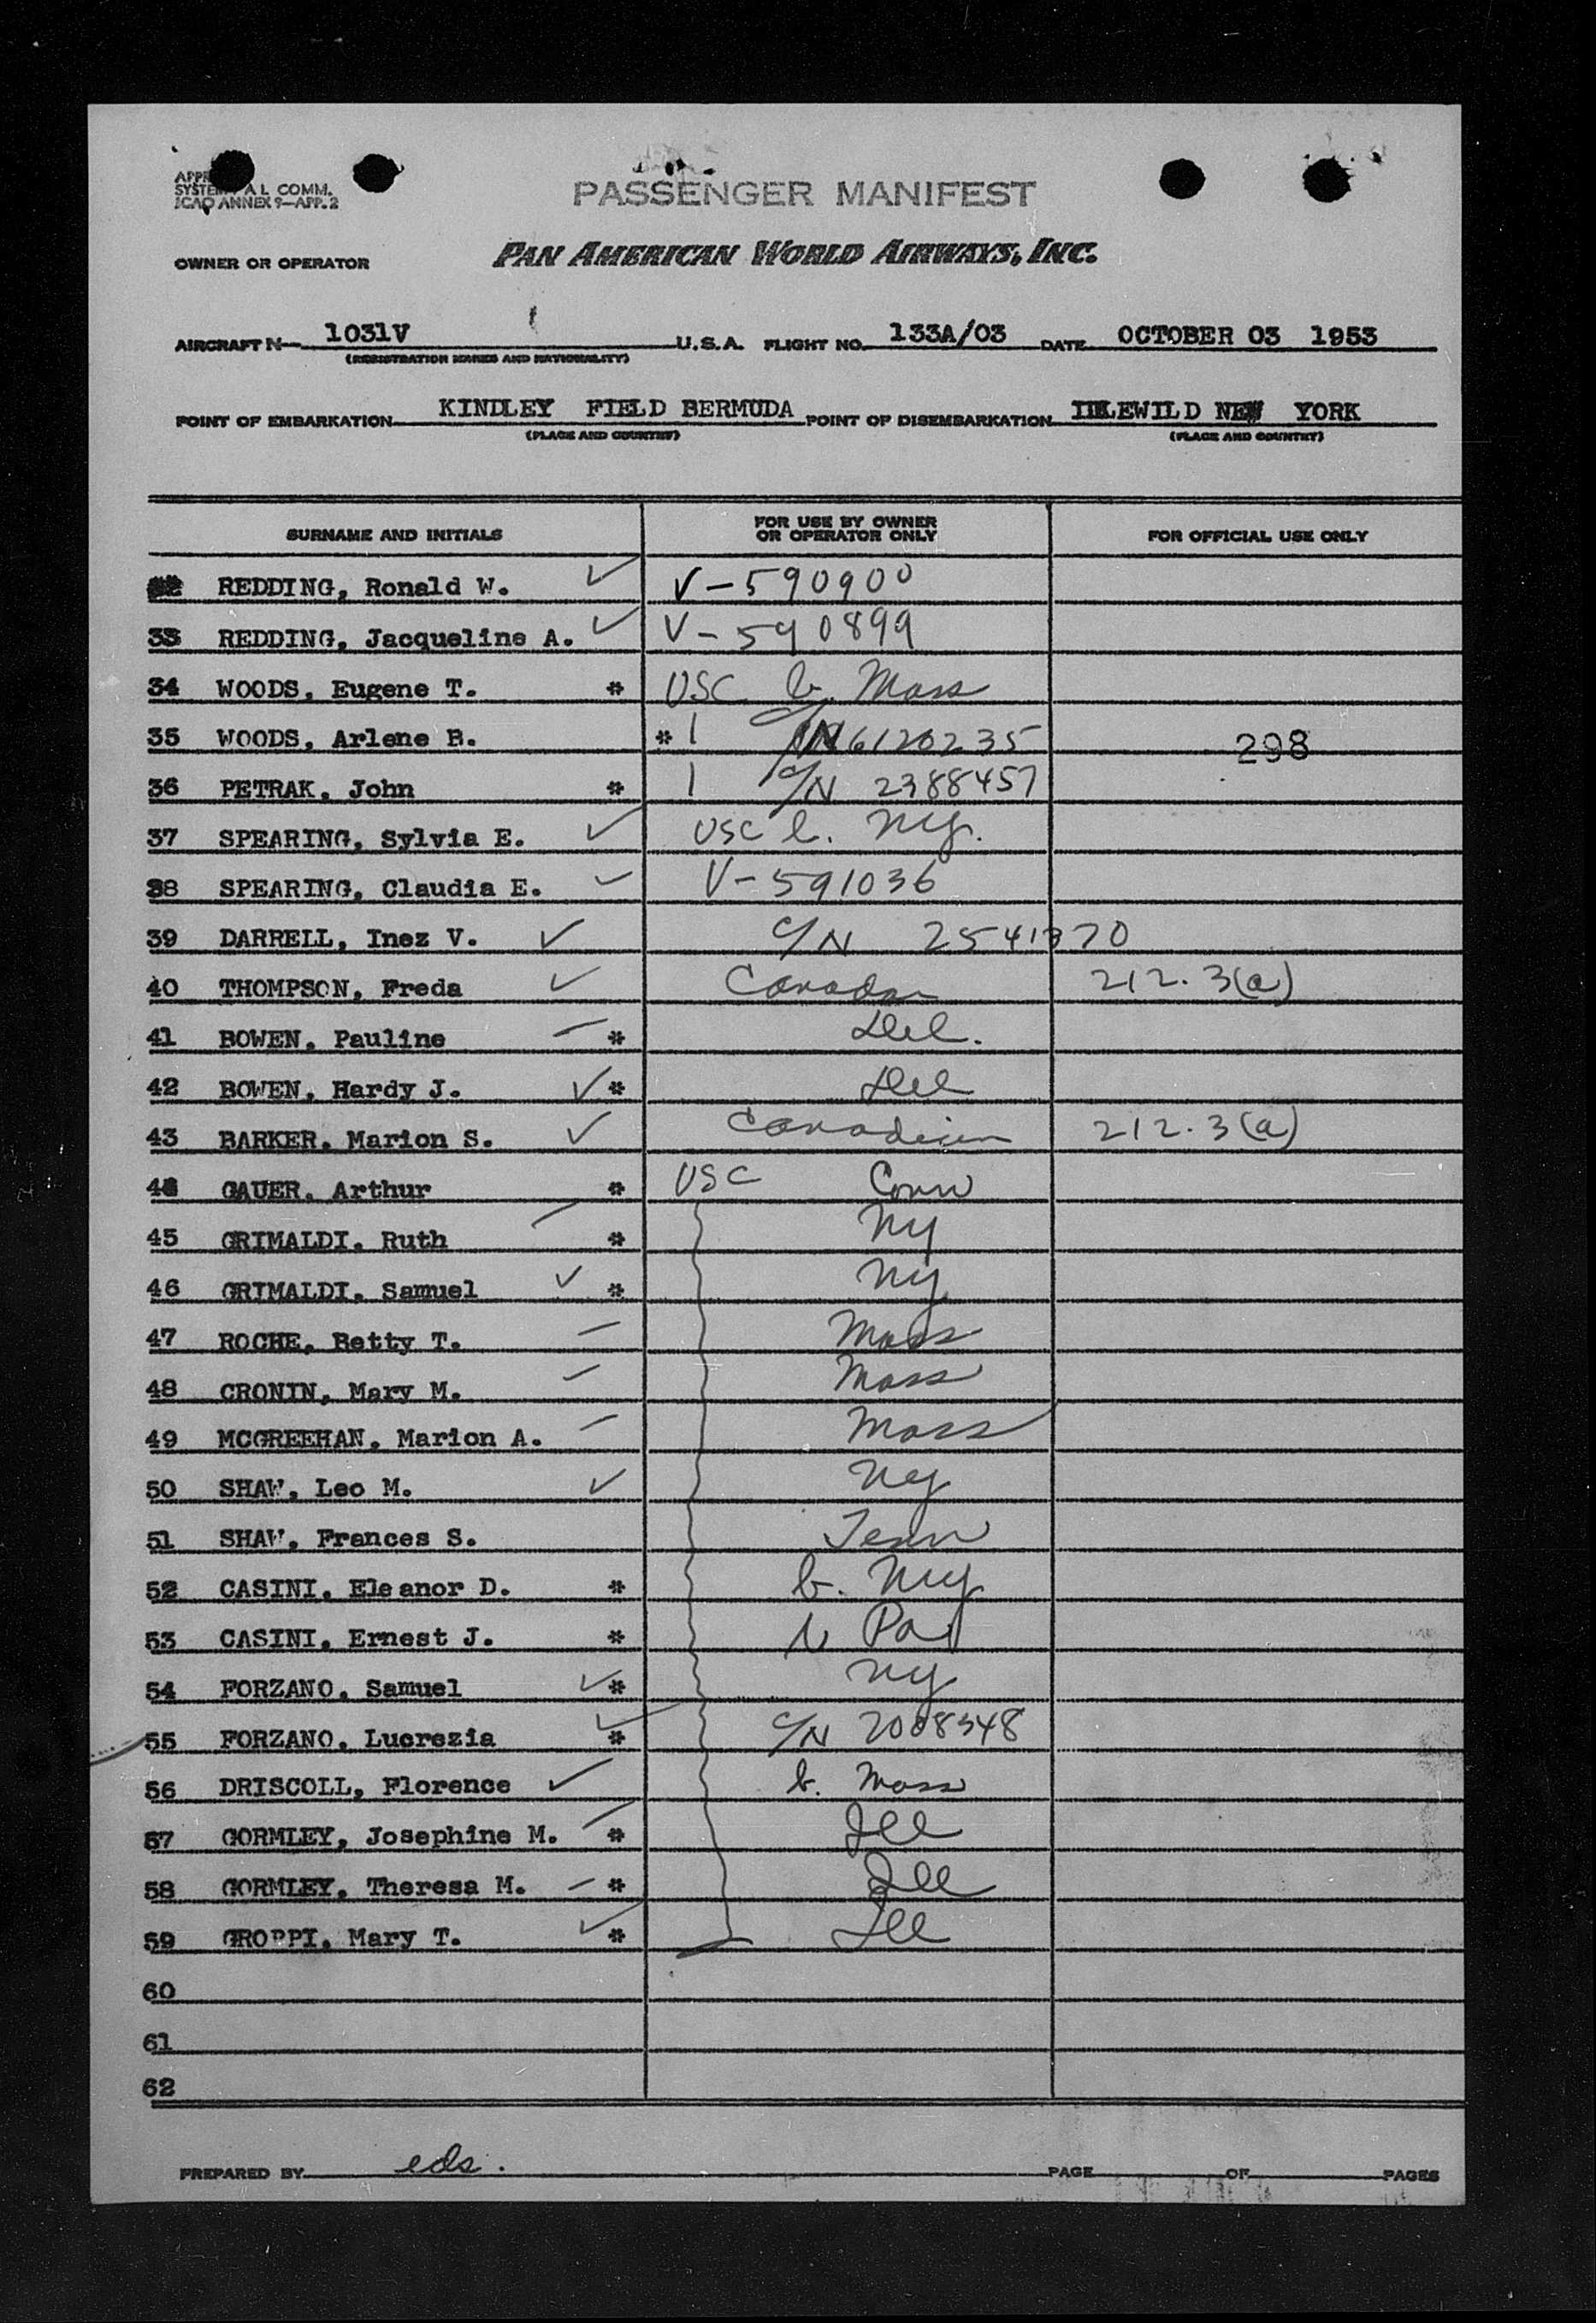 SYSTEM A L COMM.
ICAO ANNEX 9—APP. 2
PASSENGER MANIFEST
OWNER OR OPERATOR PAN AMERICAN WORLD AIRWAYS, INC.
AIRCRAFT N— 1031V U.S.A. FLIGHT NO. 133A/03 DATE OCTOBER 03 1953
(REGISTRATION MARKS AND NATIONALITY)
POINT OF EMBARKATION KINDLEY FIELD BERMUDA POINT OF DISEMBARKATION IDLEWILD NEW YORK
(PLACE AND COUNTRY) (PLACE AND COUNTRY)
SURNAME AND INITIALS FOR USE BY OWNER OR OPERATOR ONLY FOR OFFICIAL USE ONLY
REDDING, Ronald W. ✓ V-590900
33 REDDING, Jacqueline A. ✓ V-590899
34 WOODS, Eugene T. * USC b. Mass
35 WOODS, Arlene B. * | C/N 6120235 298
36 PETRAK, John * | C/N 2388457
37 SPEARING, Sylvia E. ✓ USC b. NY.
38 SPEARING, Claudia E. ✓ V-591036
39 DARRELL, Inez V. ✓ C/N 2541370
40 THOMPSON, Freda ✓ Canadian 212.3(a)
41 BOWEN, Pauline — * Del.
42 BOWEN, Hardy J. ✓ * Del
43 BARKER, Marion S. ✓ Canadian 212.3(a)
44 GAUER, Arthur * USC Conn
45 GRIMALDI, Ruth — * NY
46 GRIMALDI, Samuel ✓ * NY
47 ROCHE, Betty T. — Mass
48 CRONIN, Mary M. — Mass
49 MCGREEHAN, Marion A. — Mass
50 SHAW, Leo M. ✓ NY
51 SHAW, Frances S. Tenn
52 CASINI, Eleanor D. * b. NY
53 CASINI, Ernest J. * Pa
54 FORZANO, Samuel ✓ * NY
55 FORZANO, Lucrezia ✓ * C/N 2008348
56 DRISCOLL, Florence ✓ b. Mass
57 GORMLEY, Josephine M. — * Ill
58 GORMLEY, Theresa M. — * Ill
59 GROPPI, Mary T. ✓ * Ill
60
61
62
PREPARED BY eds. PAGE OF PAGES